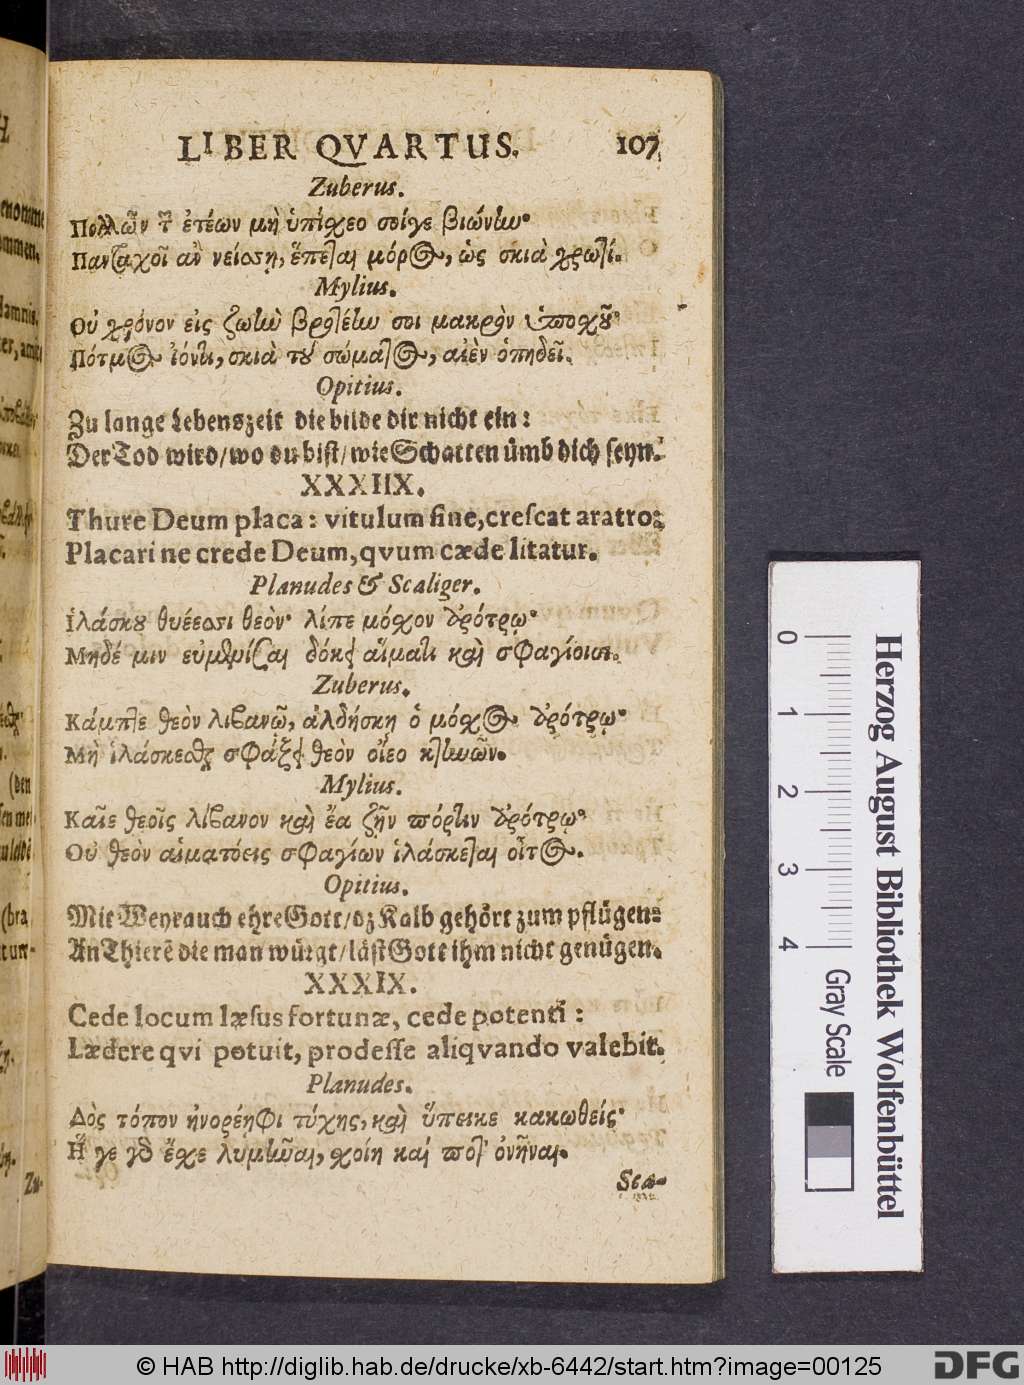 LIBER QVARTUS. 107
Zuberus.
Πολλῶν τ̅ ἐτέων μὴ ὑπίσχεο σοίγε βιώνἰω·
Πανταχοῖ ἂν νείσῃ, ἕπεται μόρος, ὡς σκιὰ χρωτί.
Mylius.
Οὐ χρόνον εἰς ζωὴν βροτέην σοι μακρὸν ὑποχοῦ·
Πότμος ἰόντι, σκιὰ τοῦ σώματος, αἰὲν ὀπηδεῖ.
Opitius.
Zu lange Lebenszeit die bilde dir nicht ein:
Der Tod wird/wo du bist/wie Schatten ümb dich seyn.
XXXIIX.
Thure Deum placa: vitulum sine, crescat aratro;
Placari ne crede Deum, qvum cæde litatur.
Planudes & Scaliger.
Ἱλάσκου θυέεσσι θεόν· λίπε μόσχον ἀρότρῳ·
Μηδέ μιν εὐμενίζαι δόκει αἵματι καὶ σφαγίοισι.
Zuberus.
Κάμπτε θεὸν λιβανῷ, ἀλδήσκῃ ὁ μόσχος ἀρότρῳ·
Μὴ ἱλάσκεσθαι σφάξει θεὸν οἴεο κτηνῶν.
Mylius.
Καῖε θεοῖς λίβανον καὶ ἔα ζῆν πόρτιν ἀρότρῳ·
Οὐ θεὸν αἱματόεις σφαγίων ἱλάσκεται οἶτος.
Opitius.
Mit Weyrauch ehre Gott/dz Kalb gehört zum pflügen:
An Thierē die man würgt/läst Gott ihm nicht genügen.
XXXIX.
Cede locum læsus fortunæ, cede potenti:
Lædere qvi potuit, prodesse aliqvando valebit.
Planudes.
Δὸς τόπον ἠνορέηφι τύχης, καὶ ὕπεικε κακωθείς·
Ἥ γε γὰρ ἔχε λυμῆναι, σχοίη καί ποτ' ὀνῆναι.
Sca-
Herzog August Bibliothek Wolfenbüttel
0 1 2 3 4 Gray Scale
© HAB http://diglib.hab.de/drucke/xb-6442/start.htm?image=00125
DFG